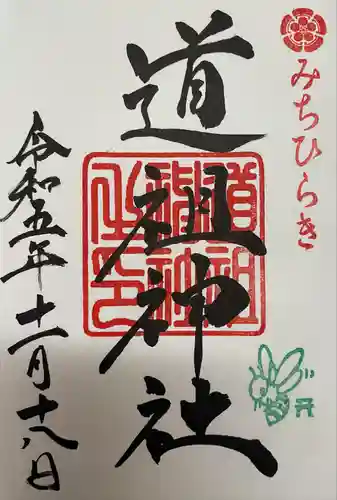 みちひらき
道祖神社
道祖神社之印
令和五年十一月十八日